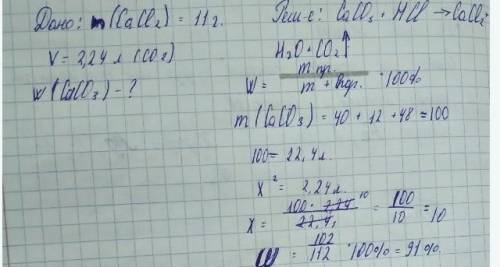 Дано: m(CaCl₂) = 11 г.
V = 2,24 л (CO₂)
w(CaCO₃) - ?
Реш-е: CaCO₃ + HCl → CaCl₂
H₂O + CO₂↑
w = m пр. / m · 100%
m(CaCO₃) = 40 + 12 + 48 = 100
100 = 22,4 л.
x = 2,24 л.
x = 100 · 2,24 / 22,4 = 100 / 10 = 10
w = 102 / 112 · 100% = 91%.